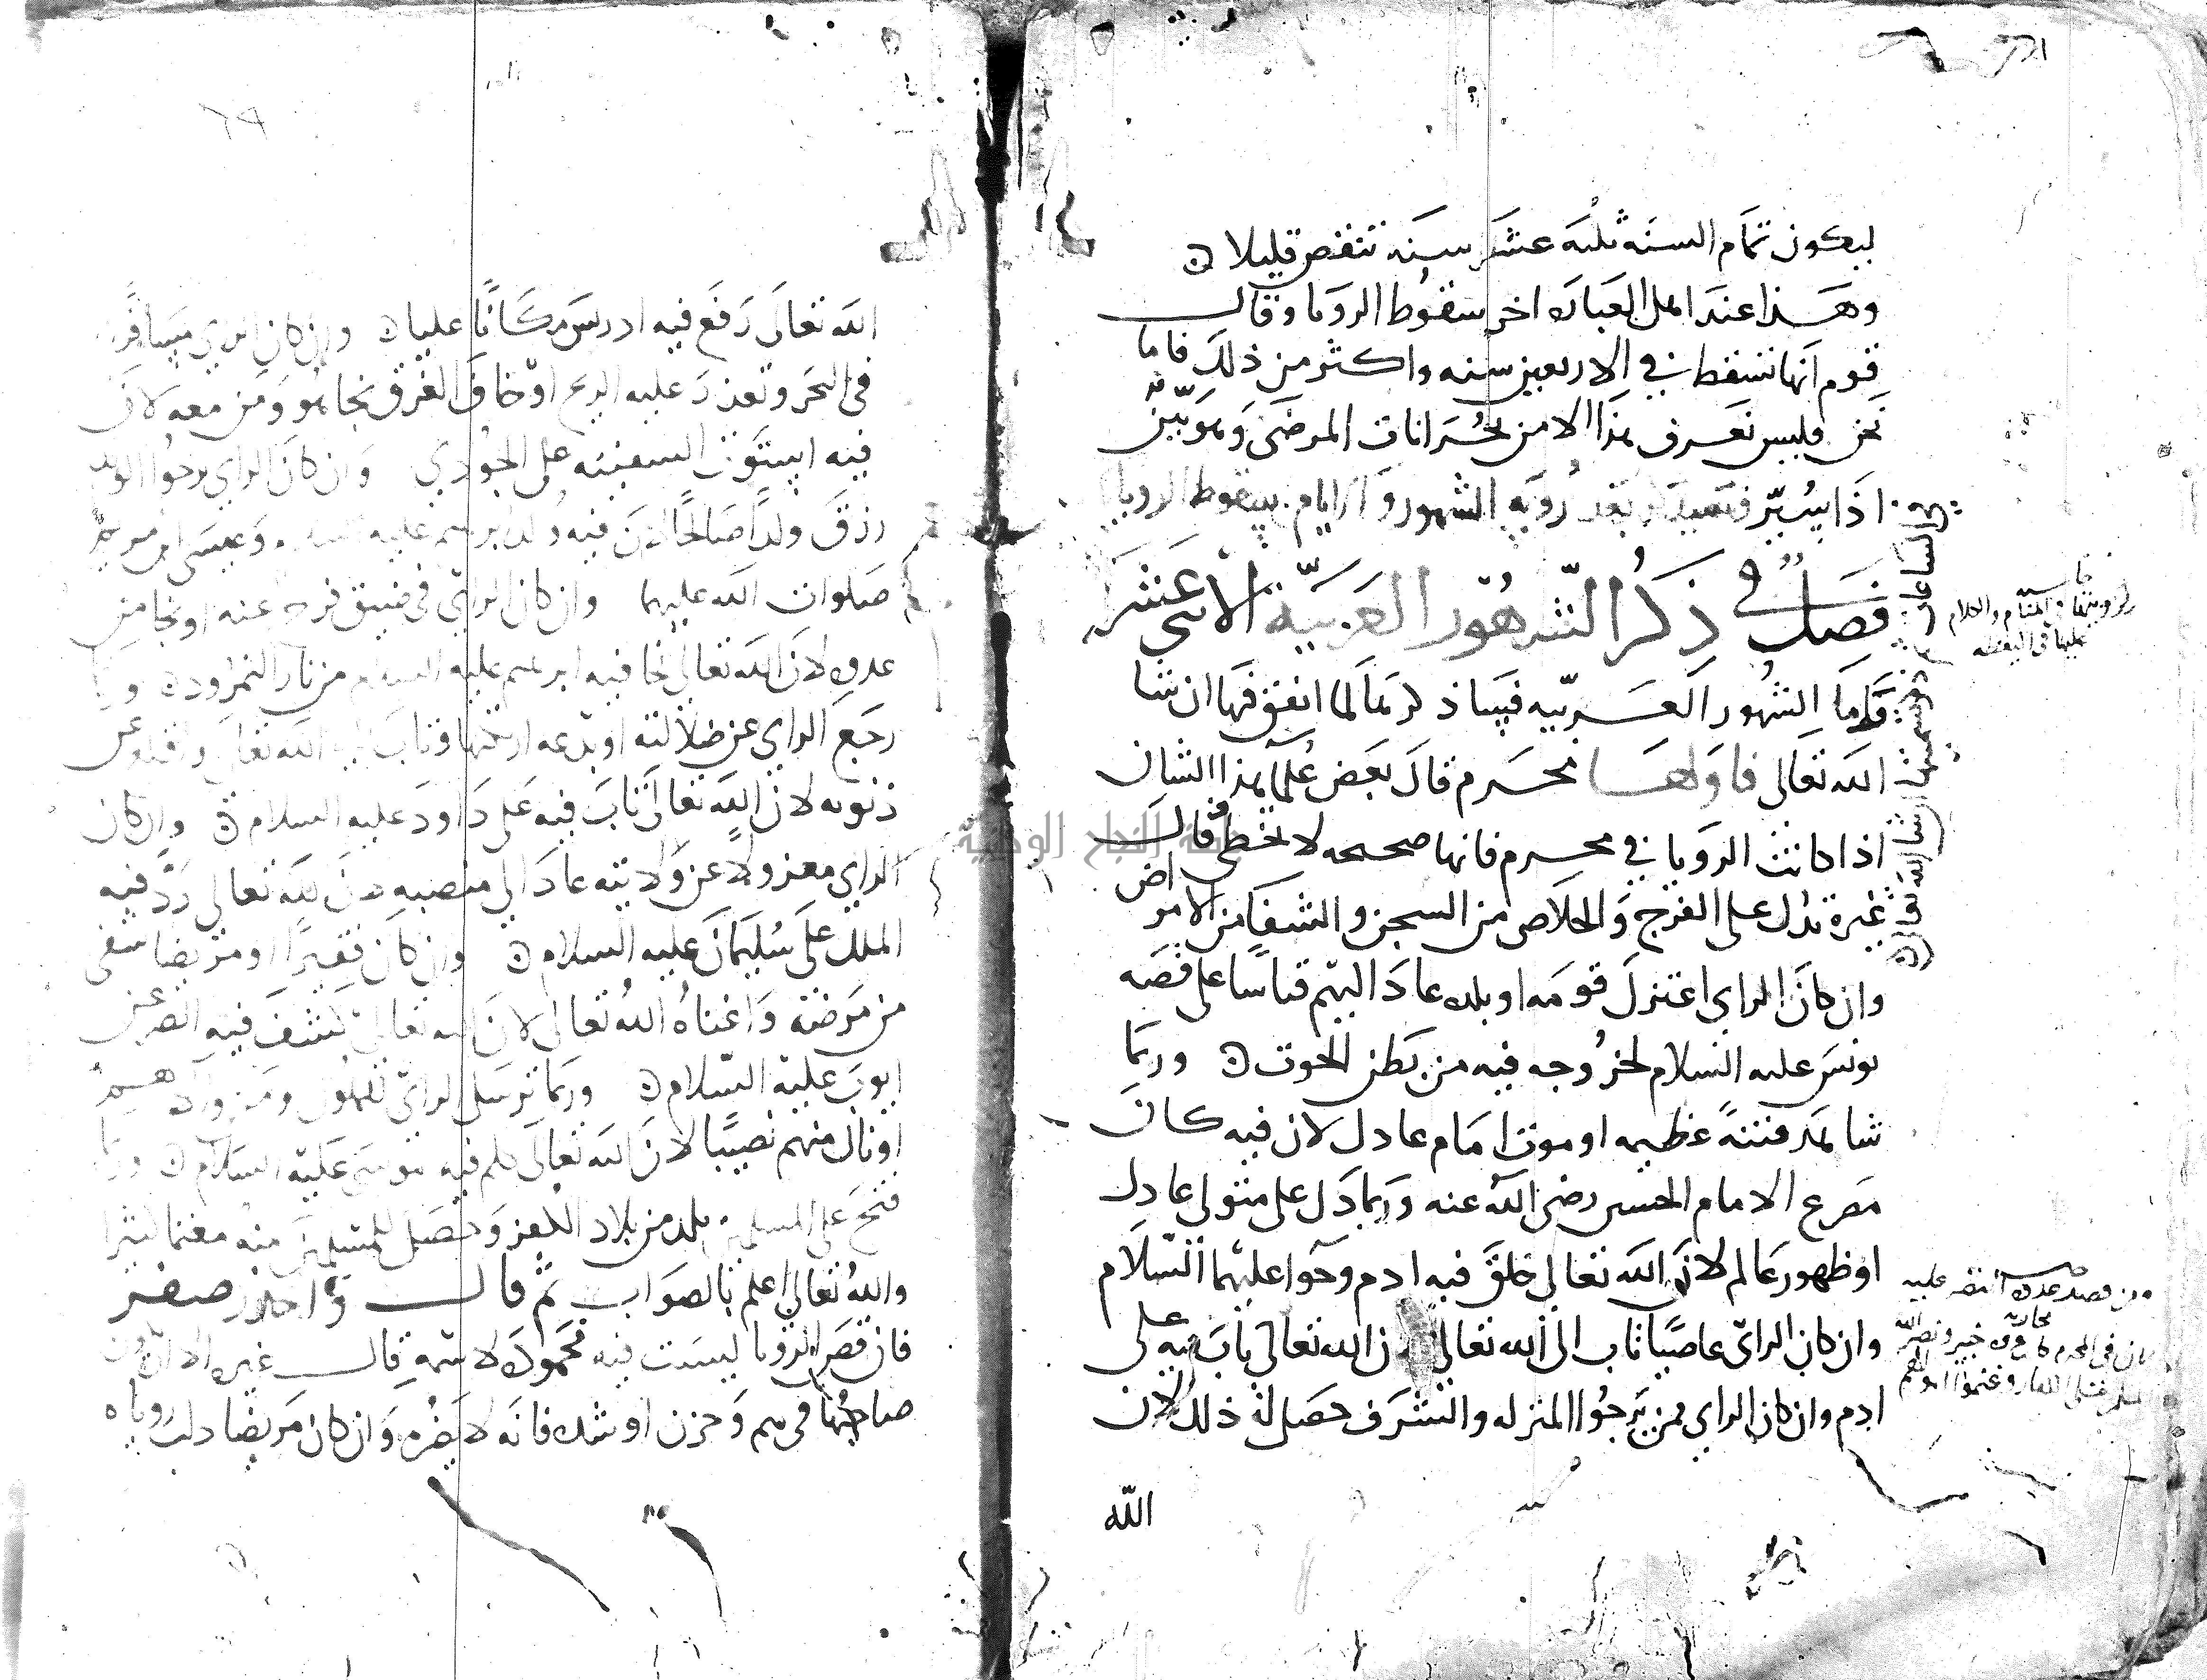 ليكون تمام السنه ثلثه عشر سنه تنقص قليلا
وهذا عند اهل العباره اخر سقوط الرويا وقال
قوم انها تسقط في الاربعين سنه واكثر من ذلك فاما
نحن فليس نعرف هذا الا من بحرانات المرضى وهو يبين
اذا يسر بعد رويه الشهور والايام سقوط الرويا
والساعات
ان شا الله تعالى
فصل في ذكر الشهور العربية الاثنى عشر
فاما الشهور العربيه فيما ذكر لما اتفق فيها ان شا
الله تعالى فاولها محرم قال بعض علما هذا الشان
اذا كانت الرويا في محرم فانها صحيحه لا تخطى وقال
غيره تدل على الفرج والخلاص من السجن والشفا من الامراض
وان كان الراي اعتزل قومه او بلده عاد اليهم قياسا على قصه
يونس عليه السلام لخروجه فيه من بطن الحوت وربما
شاهد فتنة عظيمه او موت امام عادل لان فيه كان
مصرع الامام الحسين رضى الله عنه وربما دل على متولى عادل
او ظهور عالم لان الله تعالى خلق فيه ادم وحوا عليهما السلام
وان كان الرائ عاصيا تاب الى الله تعالى لان الله تعالى تاب فيه على
ادم وان كان الراي ممن يرجوا المنزله والشرف حصل له ذلك لان
الله
الله تعالى رفع فيه ادريس مكانا عليا وان كان الراي مسافرا
في البحر وتعذر عليه الريح او خاف الغرق نجا هو ومن معه لان
فيه استوت السفينه على الجودي وان كان الراي يرجوا الولد
رزق ولدا صالحا لان فيه ولد ابرهيم عليه السلام وعيسى ابن مريم
صلوات الله عليهما وان كان الرائ في ضيق فرج عنه او نجا من
عدوه لان الله تعالى نجا فيه ابرهيم عليه السلام من نار النمرود وربما
رجع الراي عن ضلالته او بدعه ارتكبها وتاب الى الله تعالى واقلع عن
ذنوبه لان الله تعالى تاب فيه على داود عليه السلام وان كان
الراي معزولا عن ولايته عاد الى منصبه لان الله تعالى رد فيه
الملك على سليمان عليه السلام وان كان فقيرا او مريضا شفى
من مرضه واغناه الله تعالى لان الله تعالى كشف فيه الضر عن
ايوب عليه السلام وربما ترسل الرائ للملوك
او نال منهم نصيبا لان الله تعالى كلم فيه موسى عليه السلام وربما
فتح على المسلمين بلد من بلاد الكفر وحصل للمسلمين منه مغنما كثيرا
والله تعالى اعلم بالصواب ثم قال واحذر صفر
فان قص الرويا ليست فيه محموده لاسمه قال غيره الا ان
صاحبها في هم وحزن او شده فانه لا يضره وان كان مريضا دلت روياه